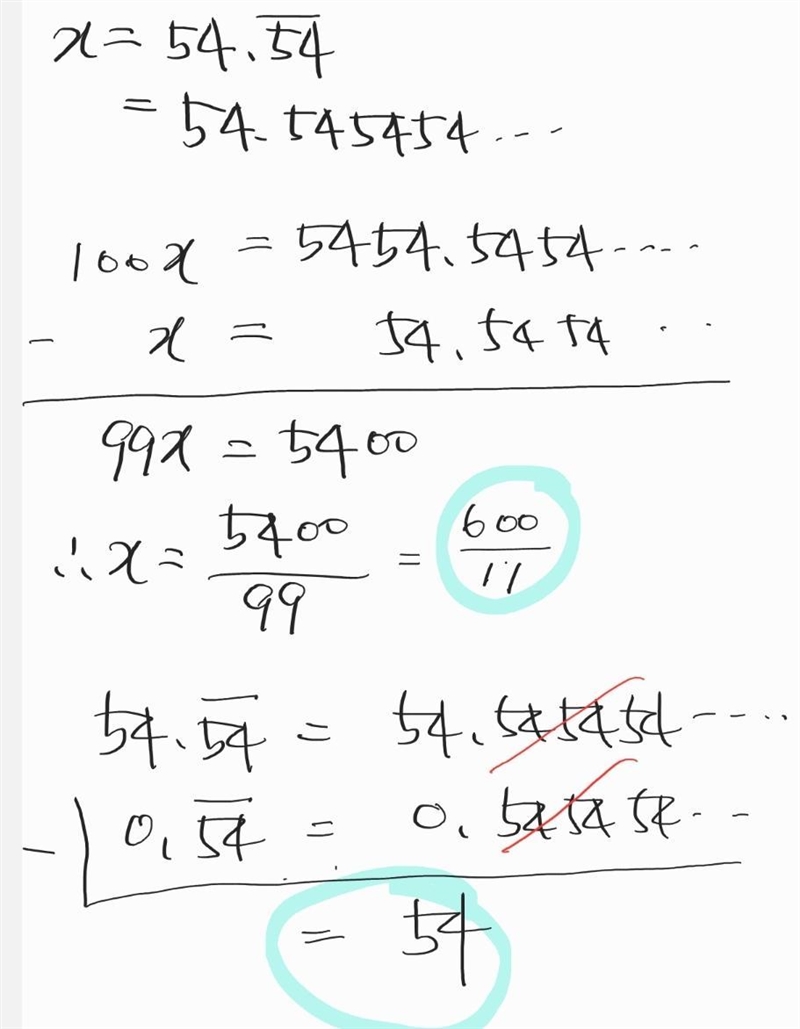 x = 54.5̅4̅
= 54.545454...
100x = 5454.5454.....
- x = 54.5454...
99x = 5400
∴ x = 5400/99 = 600/11
54.5̅4̅ = 54.545454.....
- 0.5̅4̅ = 0.545454...
= 54